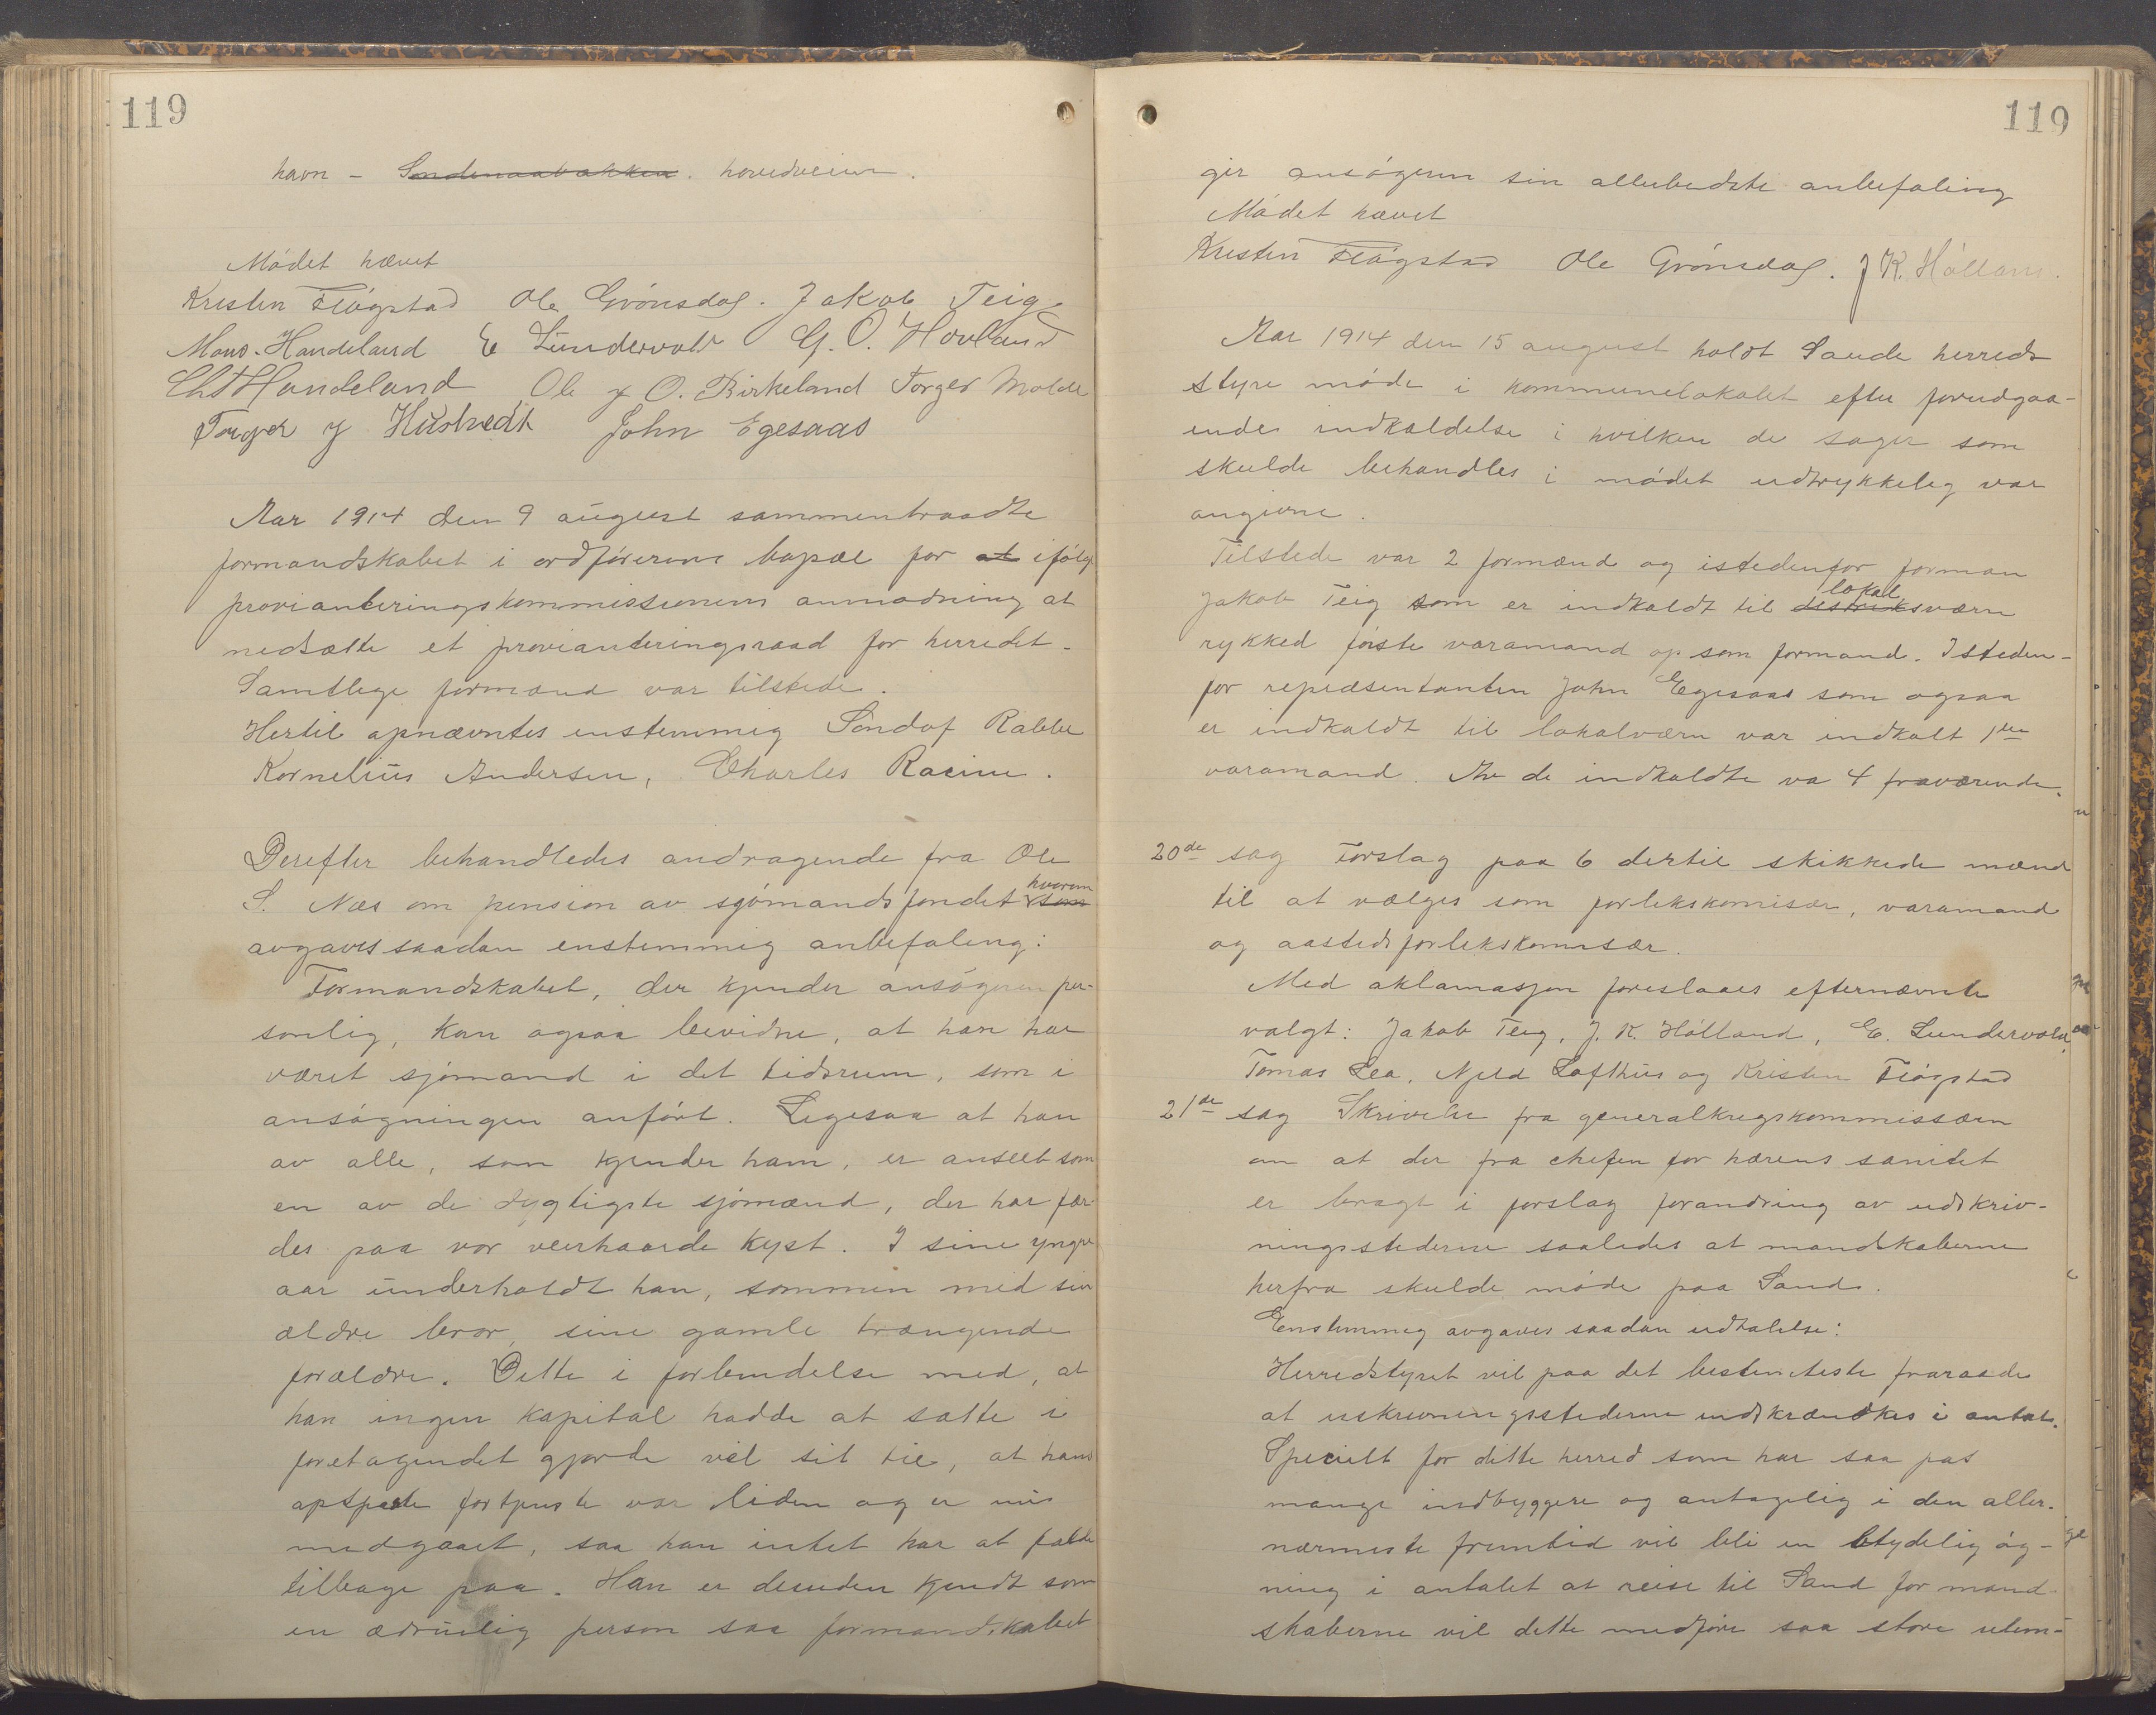 119
havn – Søndenaabakken. hovedveien.
Mødet hævet
Kristen Fløgstad Ole Grønsdal. Jakob Teig
Mons. Handeland E Lundervold G. O. Hovland
Chr Handeland Ole J O. Birkeland Torger Molde
Torger J Hustvedt John Egesaas
Aar 1914 den 9 august sammentraadte
formandskabet i ordførerens bopæl for at ifølg
provianteringskommissionens anmodning at
nedsætte et provianteringsraad for herredet.
Samtlege formænd var tilstede.
Hertil opnævntes enstemmig Søndof Rabbe
Kornelius Andersen, Charles Racine.
Derefter behandledes andragende fra Ole
S. Næs om pension av sjømandsfondet hvorom som
avgaves saadan enstemmig anbefaling:
Formandskabet, der kjender ansøgeren per-
sonlig, kan ogsaa bevidne, at han har
været sjømand i det tidsrum, som i
ansøgningen anført. Ligesaa at han
av alle, som kjender ham, er anseet som
en av de dygtigste sjømænd, der har fær-
des paa vor veirhaarde kyst. I sine yngre
aar underholdt han, sammen med sin
ældre bror, sine gamle trængende
forældre. Dette i forbindelse med, at
han ingen kapital hadde at sætte i
foretagendet gjorde vel sit til, at hans
opsparte fortjeneste var liden og er nu
medgaaet, saa han intet har at falde
tilbage paa. Han er desuden kjendt som
en ædruelig person saa formandskabet
119
gir ansøgeren sin allerbedste anbefaling
Mødet hævet
Kristen Fløgstad Ole Grønsdal. J K. Hølland.
Aar 1914 den 15 august holdt Saude herreds
styre møde i kommunelokalet efter forudgaa-
ende indkaldelse i hvilken de sager som
skulde behandles i mødet udtrykkeleg var
angivne.
Tilstede var 2 formænd og istedenfor forman
Jakob Teig som er indkaldt til distriksværn lokal
rykked første varamand op som formand. Isteden-
for repræsentanten John Egesaas som ogsaa
er indkaldt til lokalværn var indkalt 1ste
varamand. Av de indkaldte va 4 fraværende.
20de sag Forslag paa 6 dertil skikkede mænd
til at vælges som forlekskomisær, varamand
og aastedsforlekskomisær.
Med aklamasjon foreslaaes efternævnte
valgt: Jakob Teig, J. K. Hølland, E. Lundervold,
Tomas Lea, Njeld Lofthus og Kristen Fløgstad
21de sag Skrivelse fra generalkrigskommissæren
om at der fra chefen for hærens sanitet
er bragt i forslag forandring av udskriv-
ningsstederne saaledes at mandskaberne
herfra skulde møde paa Sand.
Enstemmig avgaves saadan udtalelse:
Herredstyret vil paa det bestemteste fraraade
at uskrivningsstederne indskrænkes i antal.
Specielt for dette herred som har saa pas
mange indbyggere og antagelig i den aller-
nærmeste fremtid vil bli en betydelig øg-
ning i antalet at reise til Sand for mand-
skaberne vil dette medføre saa store ulem-